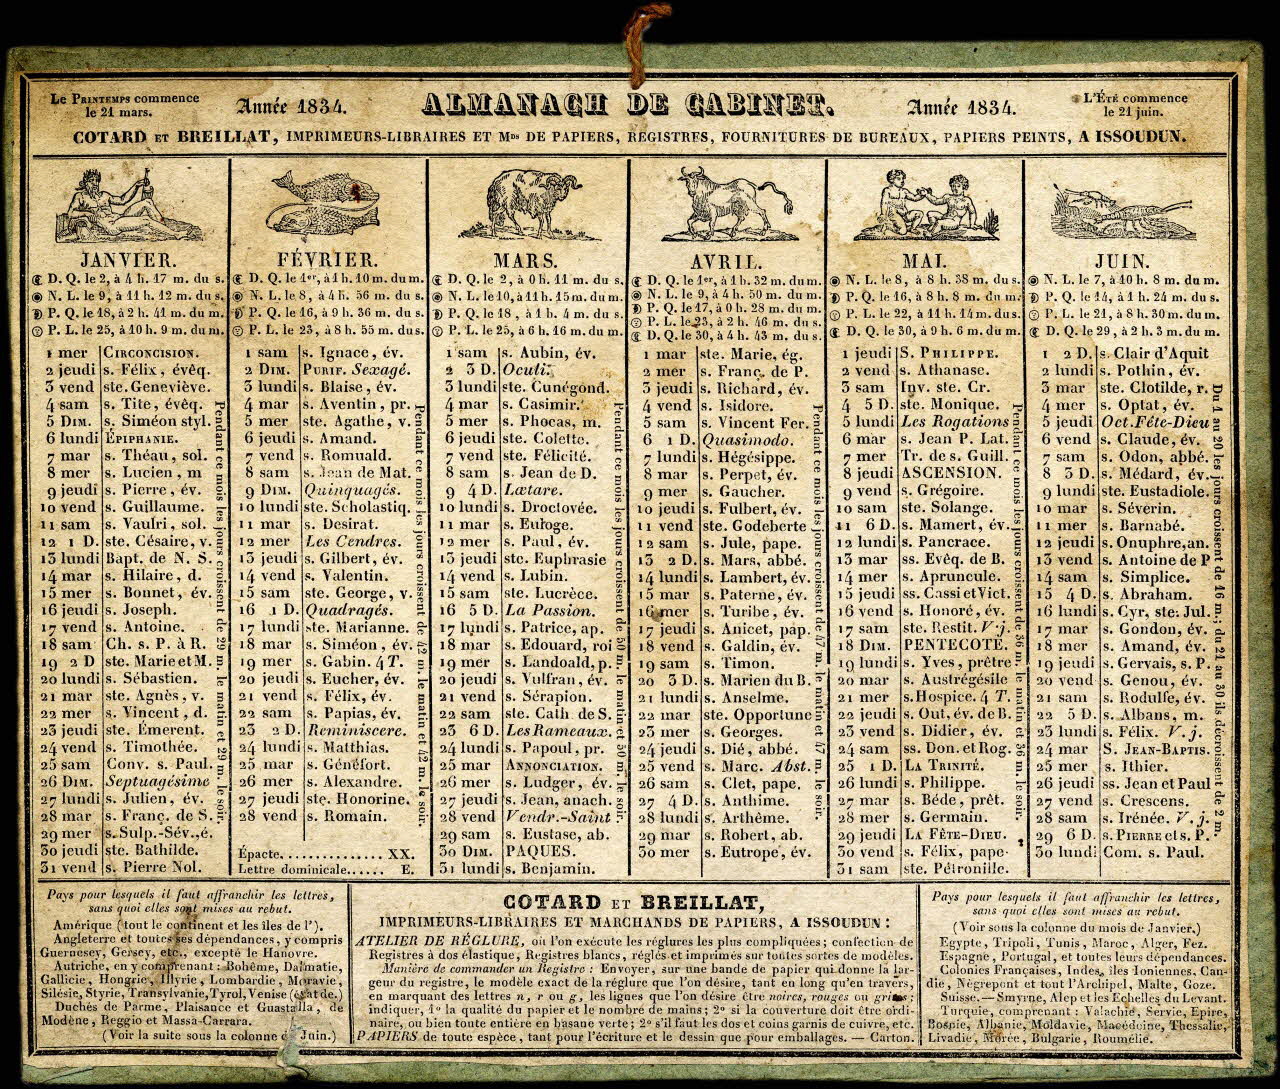 Le Printemps commence
le 21 mars.
Année 1834.
ALMANACH DE CABINET.
Année 1834.
L'Été commence
le 21 juin.
COTARD ET BREILLAT, IMPRIMEURS-LIBRAIRES ET Mds DE PAPIERS, REGISTRES, FOURNITURES DE BUREAUX, PAPIERS PEINTS, A ISSOUDUN.
JANVIER.
D. Q. le 2, à 4 h. 17 m. du s.
N. L. le 9, à 11 h. 12 m. du s.
P. Q. le 18, à 2 h. 41 m. du m.
P. L. le 25, à 10 h. 9 m. du m.
1 mer Circoncision.
2 jeudi s. Félix, évêq.
3 vend ste. Geneviève.
4 sam s. Tite, évêq.
5 Dim. s. Siméon styl.
6 lundi Épiphanie.
7 mar s. Théau, sol.
8 mer s. Lucien, m
9 jeudi s. Pierre, év.
10 vend s. Guillaume.
11 sam s. Vaulri, sol.
12 1 D. ste. Césaire, v.
13 lundi Bapt. de N. S.
14 mar s. Hilaire, d.
15 mer s. Bonnet, év.
16 jeudi s. Joseph.
17 vend s. Antoine.
18 sam Ch. s. P. à R.
19 2 D ste. Marie et M.
20 lundi s. Sébastien.
21 mar ste. Agnès, v.
22 mer s. Vincent, d.
23 jeudi ste. Émerent.
24 vend s. Timothée.
25 sam Conv. s. Paul.
26 Dim. Septuagésime
27 lundi s. Julien, év.
28 mar s. Franç. de S.
29 mer s. Sulp.-Sév., é.
30 jeudi ste. Bathilde.
31 vend s. Pierre Nol.
Pendant ce mois les jours croissent de 29 m. le matin et 29 m. le soir.
FÉVRIER.
D. Q. le 1er, à 1 h. 10 m. du m.
N. L. le 8, à 4 h. 56 m. du s.
P. Q. le 16, à 9 h. 36 m. du s.
P. L. le 23, à 8 h. 55 m. du s.
1 sam s. Ignace, év.
2 Dim. Purif. Sexagé.
3 lundi s. Blaise, év.
4 mar s. Aventin, pr.
5 mer ste. Agathe, v.
6 jeudi s. Amand.
7 vend s. Romuald.
8 sam s. Jean de Mat.
9 Dim. Quinquagés.
10 lundi ste. Scholastiq.
11 mar s. Desirat.
12 mer Les Cendres.
13 jeudi s. Gilbert, év.
14 vend s. Valentin.
15 sam ste. George, v.
16 1 D. Quadragés.
17 lundi ste. Marianne.
18 mar s. Siméon, év.
19 mer s. Gabin. 4 T.
20 jeudi s. Eucher, év.
21 vend s. Félix, év.
22 sam s. Papias, év.
23 2 D. Reminiscere.
24 lundi s. Matthias.
25 mar s. Généfort.
26 mer s. Alexandre.
27 jeudi ste. Honorine.
28 vend s. Romain.
Épacte............... XX.
Lettre dominicale...... E.
Pendant ce mois les jours croissent de 42 m. le matin et 42 m. le soir.
MARS.
D. Q. le 2, à 0 h. 11 m. du s.
N. L. le 10, à 11 h. 15 m. du m.
P. Q. le 18, à 1 h. 4 m. du s.
P. L. le 25, à 6 h. 16 m. du m.
1 sam s. Aubin, év.
2 3 D. Oculi.
3 lundi ste. Cunégond.
4 mar s. Casimir.
5 mer s. Phocas, m.
6 jeudi ste. Colette.
7 vend ste. Félicité.
8 sam s. Jean de D.
9 4 D. Lætare.
10 lundi s. Droctovée.
11 mar s. Euloge.
12 mer s. Paul, év.
13 jeudi ste. Euphrasie
14 vend s. Lubin.
15 sam ste. Lucrèce.
16 5 D. La Passion.
17 lundi s. Patrice, ap.
18 mar s. Edouard, roi
19 mer s. Landoald, p.
20 jeudi s. Vulfran, év.
21 vend s. Sérapion.
22 sam ste. Cath. de S.
23 6 D. Les Rameaux.
24 lundi s. Papoul, pr.
25 mar Annonciation.
26 mer s. Ludger, év.
27 jeudi s. Jean, anach.
28 vend Vendr.-Saint
29 sam s. Eustase, ab.
30 Dim. PAQUES.
31 lundi s. Benjamin.
Pendant ce mois les jours croissent de 50 m. le matin et 50 m. le soir.
AVRIL.
D. Q. le 1er, à 1 h. 32 m. du m.
N. L. le 9, à 4 h. 50 m. du m.
P. Q. le 17, à 0 h. 28 m. du m.
P. L. le 23, à 2 h. 46 m. du s.
D. Q. le 30, à 4 h. 43 m. du s.
1 mar ste. Marie, ég.
2 mer s. Franç. de P.
3 jeudi s. Richard, év.
4 vend s. Isidore.
5 sam s. Vincent Fer.
6 1 D. Quasimodo.
7 lundi s. Hégésippe.
8 mar s. Perpet, év.
9 mer s. Gaucher.
10 jeudi s. Fulbert, év.
11 vend ste. Godeberte
12 sam s. Jule, pape.
13 2 D. s. Mars, abbé.
14 lundi s. Lambert, év.
15 mar s. Paterne, év.
16 mer s. Turibe, év.
17 jeudi s. Anicet, pap.
18 vend s. Galdin, év.
19 sam s. Timon.
20 3 D. s. Marien du B.
21 lundi s. Anselme.
22 mar ste. Opportune
23 mer s. Georges.
24 jeudi s. Dié, abbé.
25 vend s. Marc. Abst.
26 sam s. Clet, pape.
27 4 D. s. Anthime.
28 lundi s. Arthême.
29 mar s. Robert, ab.
30 mer s. Eutrope, év.
Pendant ce mois les jours croissent de 47 m. le matin et 47 m. le soir.
MAI.
N. L. le 8, à 8 h. 38 m. du s.
P. Q. le 16, à 8 h. 8 m. du m.
P. L. le 22, à 11 h. 14 m. du s.
D. Q. le 30, à 9 h. 6 m. du m.
1 jeudi S. Philippe.
2 vend s. Athanase.
3 sam Inv. ste. Cr.
4 5 D. ste. Monique.
5 lundi Les Rogations
6 mar s. Jean P. Lat.
7 mer Tr. de s. Guill.
8 jeudi ASCENSION.
9 vend s. Grégoire.
10 sam ste. Solange.
11 6 D. s. Mamert, év.
12 lundi s. Pancrace.
13 mar ss. Evêq. de B.
14 mer s. Apruncule.
15 jeudi ss. Cassi et Vict.
16 vend s. Honoré, év.
17 sam ste. Restit. V. j.
18 Dim. PENTECOTE.
19 lundi s. Yves, prêtre
20 mar s. Austrégésile
21 mer s. Hospice. 4 T.
22 jeudi s. Out, év. de B.
23 vend s. Didier, év.
24 sam ss. Don. et Rog.
25 1 D. La Trinité.
26 lundi s. Philippe.
27 mar s. Béde, prêt.
28 mer s. Germain.
29 jeudi La Fête-Dieu.
30 vend s. Félix, pape
31 sam ste. Pétronille.
Pendant ce mois les jours croissent de 36 m. le matin et 36 m. le soir.
JUIN.
N. L. le 7, à 10 h. 8 m. du m.
P. Q. le 14, à 1 h. 24 m. du s.
P. L. le 21, à 8 h. 30 m. du m.
D. Q. le 29, à 2 h. 3 m. du m.
1 2 D. s. Clair d'Aquit
2 lundi s. Pothin, év.
3 mar ste. Clotilde, r.
4 mer s. Optat, év.
5 jeudi Oct. Fête-Dieu
6 vend s. Claude, év.
7 sam s. Odon, abbé.
8 3 D. s. Médard, év.
9 lundi ste. Eustadiole.
10 mar s. Séverin.
11 mer s. Barnabé.
12 jeudi s. Onuphre, an.
13 vend s. Antoine de P
14 sam s. Simplice.
15 4 D. s. Abraham.
16 lundi s. Cyr, ste: Jul.
17 mar s. Gondon, év.
18 mer s. Amand, év.
19 jeudi s. Gervais, s. P.
20 vend s. Genou, év.
21 sam s. Rodulfe, év.
22 5 D. s. Albans, m.
23 lundi s. Félix. V. j.
24 mar S. Jean-Baptis.
25 mer s. Ithier.
26 jeudi ss. Jean et Paul
27 vend s. Crescens.
28 sam s. Irénée. V. j.
29 6 D. s. Pierre et s. P.
30 lundi Com. s. Paul.
Du 1 au 20 les jours croissent de 16 m.; du 21 au 30 ils décroissent de 2 m.
Pays pour lesquels il faut affranchir les lettres,
sans quoi elles sont mises au rebut.
Amérique (tout le continent et les îles de l').
Angleterre et toutes ses dépendances, y compris
Guernesey, Gersey, etc., excepté le Hanovre.
Autriche, en y comprenant : Bohême, Dalmatie,
Gallicie, Hongrie, Illyrie, Lombardie, Moravie,
Silésie, Styrie, Transylvanie, Tyrol, Venise (état de.)
Duchés de Parme, Plaisance et Guastalla, de
Modène, Reggio et Massa-Carrara.
(Voir la suite sous la colonne de Juin.)
COTARD ET BREILLAT,
IMPRIMEURS-LIBRAIRES ET MARCHANDS DE PAPIERS, A ISSOUDUN :
ATELIER DE RÉGLURE, où l'on exécute les réglures les plus compliquées; confection de
Registres à dos élastique, Registres blancs, réglés et imprimés sur toutes sortes de modèles.
Manière de commander un Registre : Envoyer, sur une bande de papier qui donne la lar-
geur du registre, le modèle exact de la réglure que l'on désire, tant en long qu'en travers,
en marquant des lettres n, r ou g, les lignes que l'on désire être noires, rouges ou grises;
indiquer, 1º la qualité du papier et le nombre de mains; 2º si la couverture doit être ordi-
naire, ou bien toute entière en basane verte; 2º s'il faut les dos et coins garnis de cuivre, etc.
PAPIERS de toute espèce, tant pour l'écriture et le dessin que pour emballages. — Carton.
Pays pour lesquels il faut affranchir les lettres,
sans quoi elles sont mises au rebut.
(Voir sous la colonne du mois de Janvier.)
Egypte, Tripoli, Tunis, Maroc, Alger, Fez.
Espagne, Portugal, et toutes leurs dépendances.
Colonies Françaises, Indes, îles Ioniennes. Can-
die, Nègrepont et tout l'Archipel, Malte, Goze.
Suisse. — Smyrne, Alep et les Echelles du Levant.
Turquie, comprenant : Valachie, Servie, Epire,
Bospie, Albanie, Moldavie, Macédoine, Thessalie,
Livadie, Morée, Bulgarie, Roumélie.